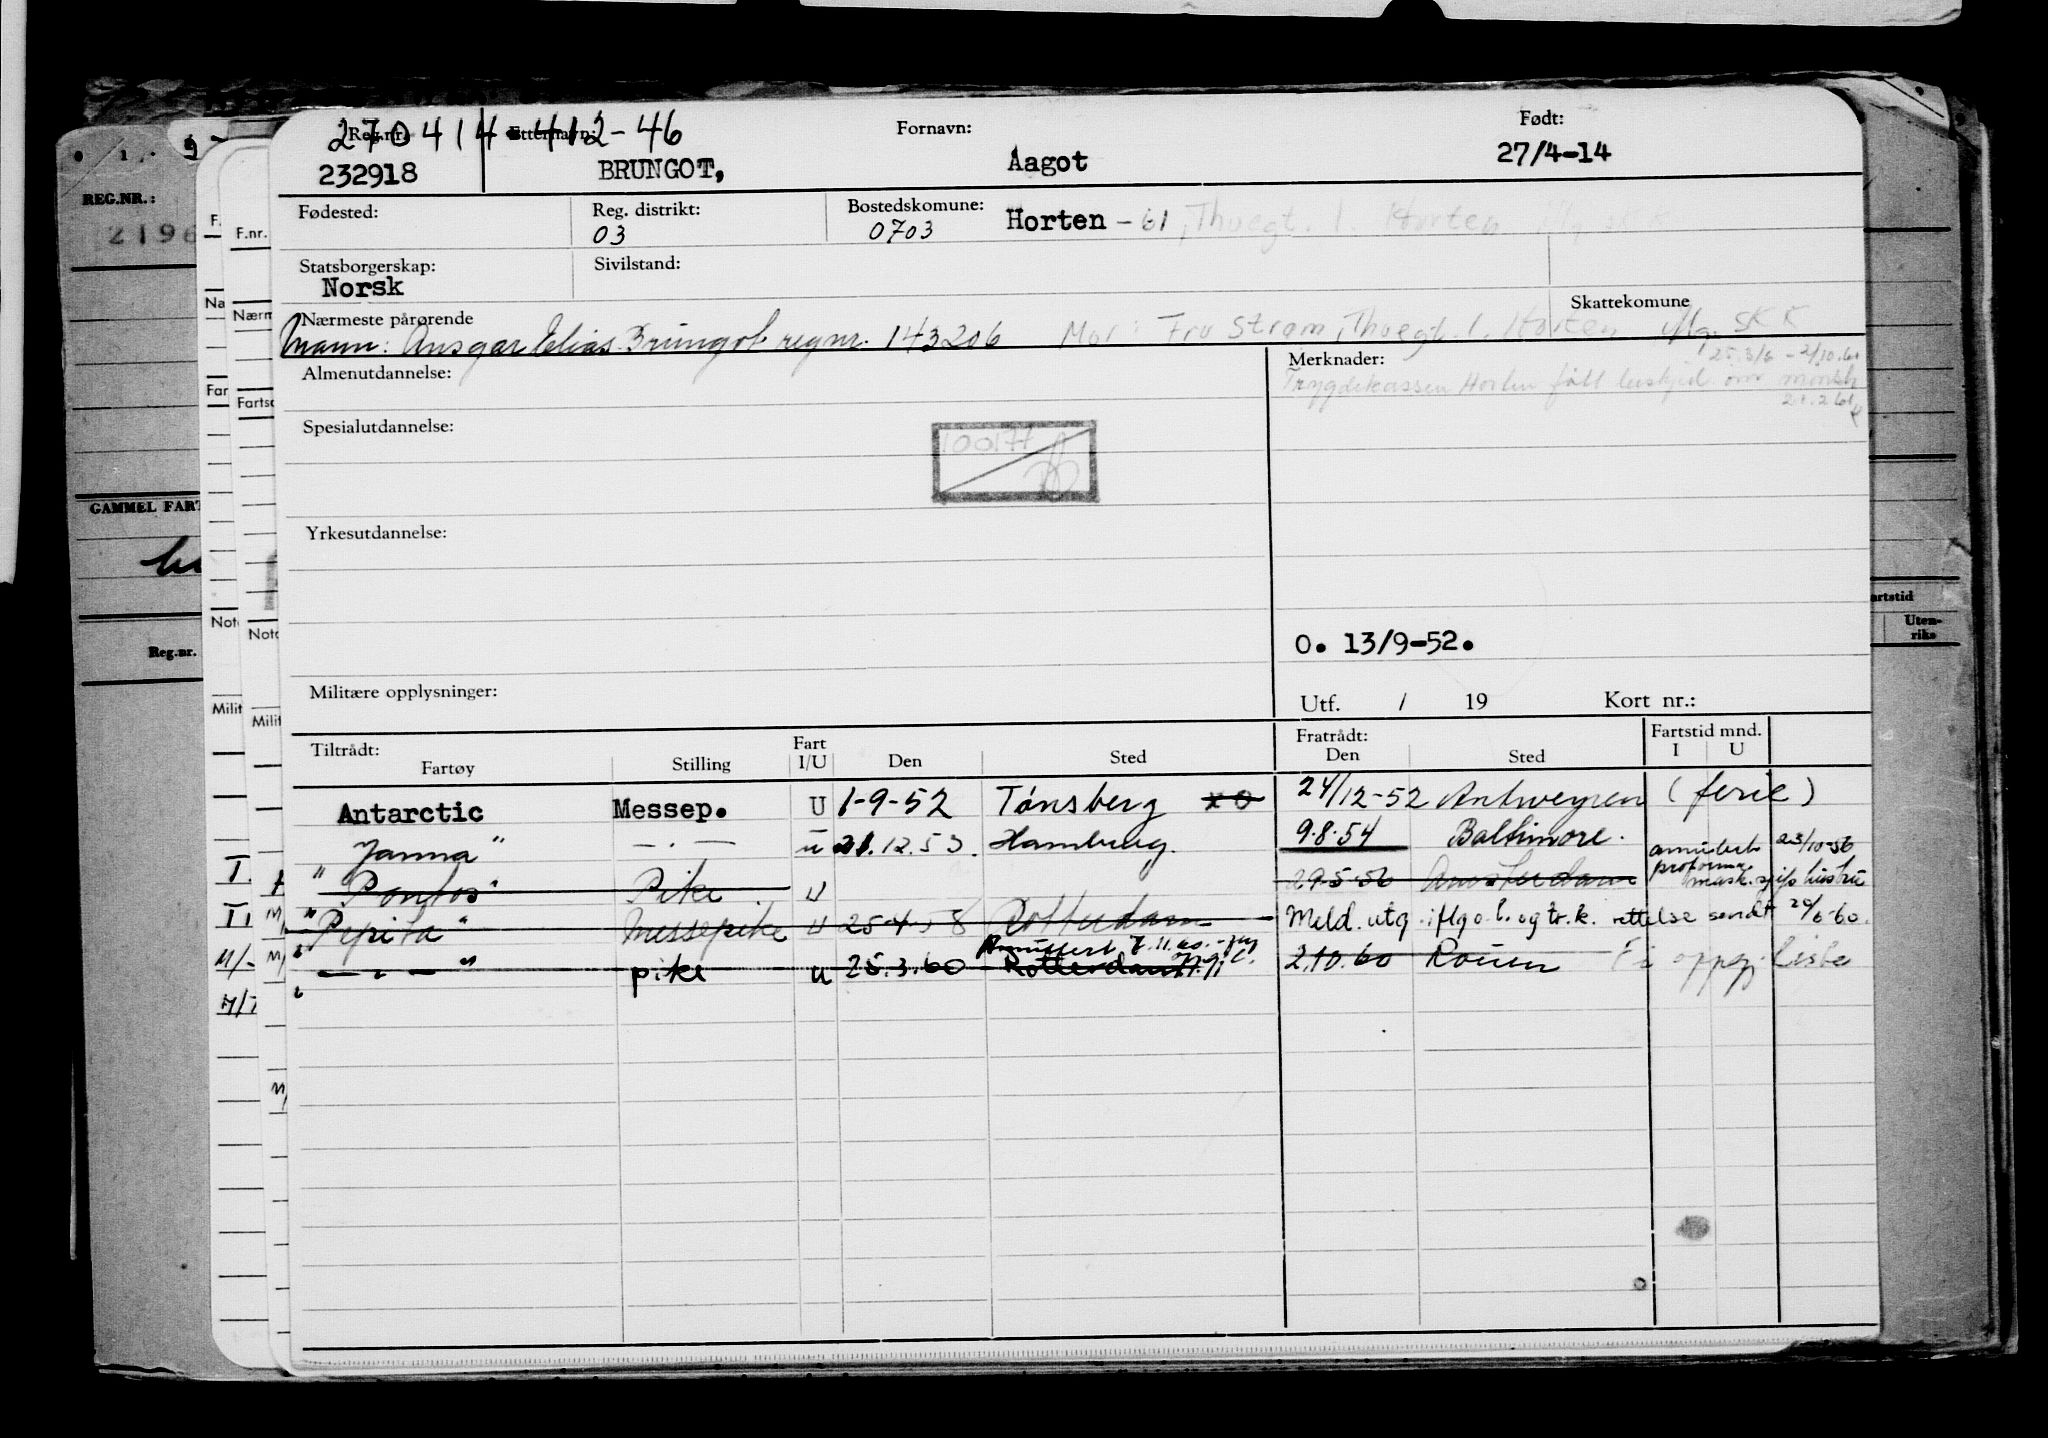 270414 412-46
Reg.nr. Etternavn: Fornavn: Født:
232918 BRUNGOT, Aagot 27/4-14
Fødested: Reg. distrikt: Bostedskomune: Horten - 61, Thuegt. 1. Horten
03 0703
Statsborgerskap: Sivilstand:
Norsk
Nærmeste pårørende Skattekomune
Mann: Ansgar Elias Brungot regnr. 143206 Mor: Fru Strøm, Thuegt. 1. Horten iflg. SKK
25.3/6 - 2/10.60
Almenutdannelse: Merknader:
Trygdekassen Horten fått beskjed om mønstr
Spesialutdannelse:
100177
Yrkesutdannelse:
O. 13/9-52.
Militære opplysninger: Utf. / 19 Kort nr.:
Tiltrådt: Fart Fratrådt: Fartstid mnd.
Fartøy Stilling I/U Den Sted Den Sted I U
Antarctic Messep. U 1-9-52 Tønsberg xo 24/12-52 Antwerpen (ferie)
" Janna " — . — u 21.12.53. Hamburg. 9.8.54 Baltimore.
annulert 23/10-56
proforma
" Pontos " Pike U 29-5-56 Amsterdam mask.sjefs hustru
" Pepita " Messepike U 25-4-58 Rotterdam Meld. utg. iflg o.l. og tr.k. rettelse sendt 20/6-60.
Annullert 7.11.60.
" — . — " pike u 25.3.60 Rotterdam 2.10.60 Rouen oppgj. Lisbe
REG.NR.:
2196
GAMMEL FART
Reg.nr.
F.
F.nr.
Na
Nærm
Far
Fartsc
Note
Note
Milit
Milit
artstid
Uten-
riks